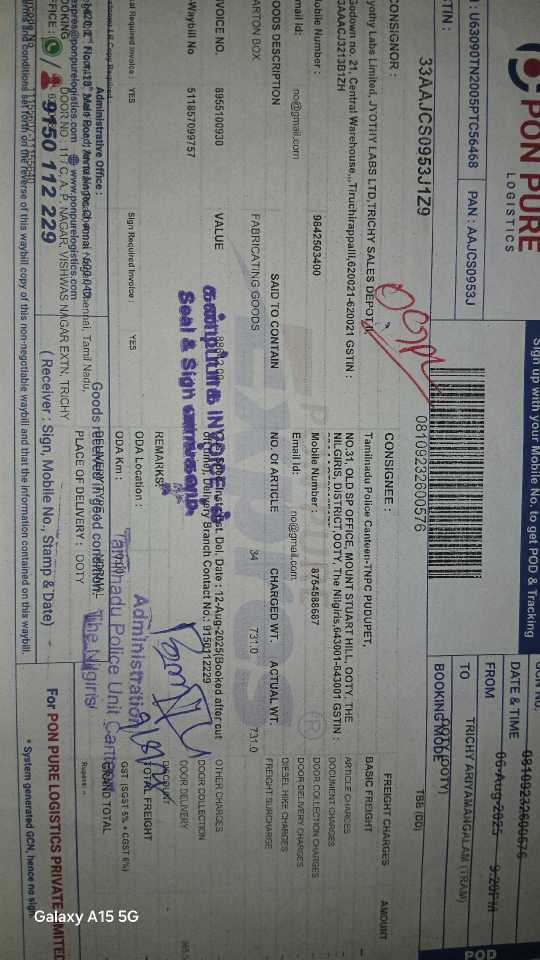 PON PURE
LOGISTICS
Sign up with your Mobile No. to get POD & Tracking
: U63090TN2005PTC56468
PAN : AAJCS0953J
GSTIN :
33AAJCS0953J1Z9
08109232600576
GCN No.
08109232600576
DATE & TIME
06-Aug-2025 9:20PM
FROM
TRICHY ARIYAMANGALAM (TRAM)
TO
OOTY (OOTY)
BOOKING MODE
TBB (DD)
POD
CONSIGNOR :
Jyothy Labs Limited, JYOTHY LABS LTD,TRICHY SALES DEPOT,
Godown no. 21, Central Warehouse,,,Tiruchirappalli,620021-620021 GSTIN :
Mobile Number : 9842503400
Email Id: no@gmail.com
CONSIGNEE :
Tamilnadu Police Canteen-TNPC PUDUPET,
NO.31, OLD SP OFFICE, MOUNT STUART HILL, OOTY, THE
NILGIRIS, DISTRICT,OOTY, The Nilgiris,643001-643001 GSTIN :
Mobile Number : 8754588687
Email Id: no@gmail.com
FREIGHT CHARGES AMOUNT
BASIC FREIGHT
ARTICLE CHARGES
DOCUMENT CHARGES
DOOR COLLECTION CHARGES
DOOR DELIVERY CHARGES
DIESEL HIKE CHARGES
FREIGHT SURCHARGE
OTHER CHARGES
DOOR COLLECTION
DOOR DELIVERY
DISCOUNT
TOTAL FREIGHT
GST (SGST 6% + CGST 6%)
GRAND TOTAL
Rupees :-
GOODS DESCRIPTION SAID TO CONTAIN NO. Of ARTICLE CHARGED WT. ACTUAL WT.
CARTON BOX FABRICATING GOODS 34 731.0 731.0
INVOICE NO. 8955100930 VALUE
E-Waybill No 511857099757
Est. Del. Date : 12-Aug-2025(Booked after cut
Delivery Branch Contact No.: 9150112229
INVOICE
Seal & Sign
REMARKS:
Required Invoice : YES
Sign Required Invoice : YES
ODA Location :
ODA Km :
PLACE OF DELIVERY : OOTY
Administration
Tamilnadu Police Unit Canteen
The Nilgiris
Goods received in good condition.
( Receiver : Sign, Mobile No., Stamp & Date)
Administrative Office :
www.ponpurelogistics.com
DOOR NO : 11 / C, A. P. NAGAR, VISHWAS NAGAR EXTN, TRICHY
9150 112 229
terms and conditions set forth on the reverse of this waybill copy of this non-negotiable waybill and that the information contained on this waybill.
For PON PURE LOGISTICS PRIVATE LIMITED
* System generated GCN, hence no sign.
Express
Galaxy A15 5G